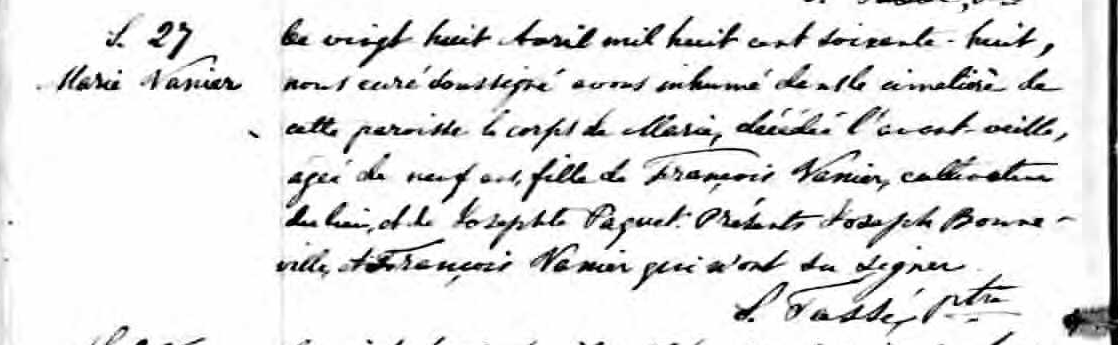 S. 27
Marie Vanier
Le vingt huit Avril mil huit cent soixante-huit,
nous curé soussigné avons inhumé dans le cimetière de
cette paroisse le corps de Marie, décédée l'avant-veille,
agée de neuf ans, fille de François Vanier, cultivateur
du lieu, et de Josephte Paquet. Présents Joseph Bonne-
ville, et François Vanier qui n'ont su signer.
S. Tassé, ptre